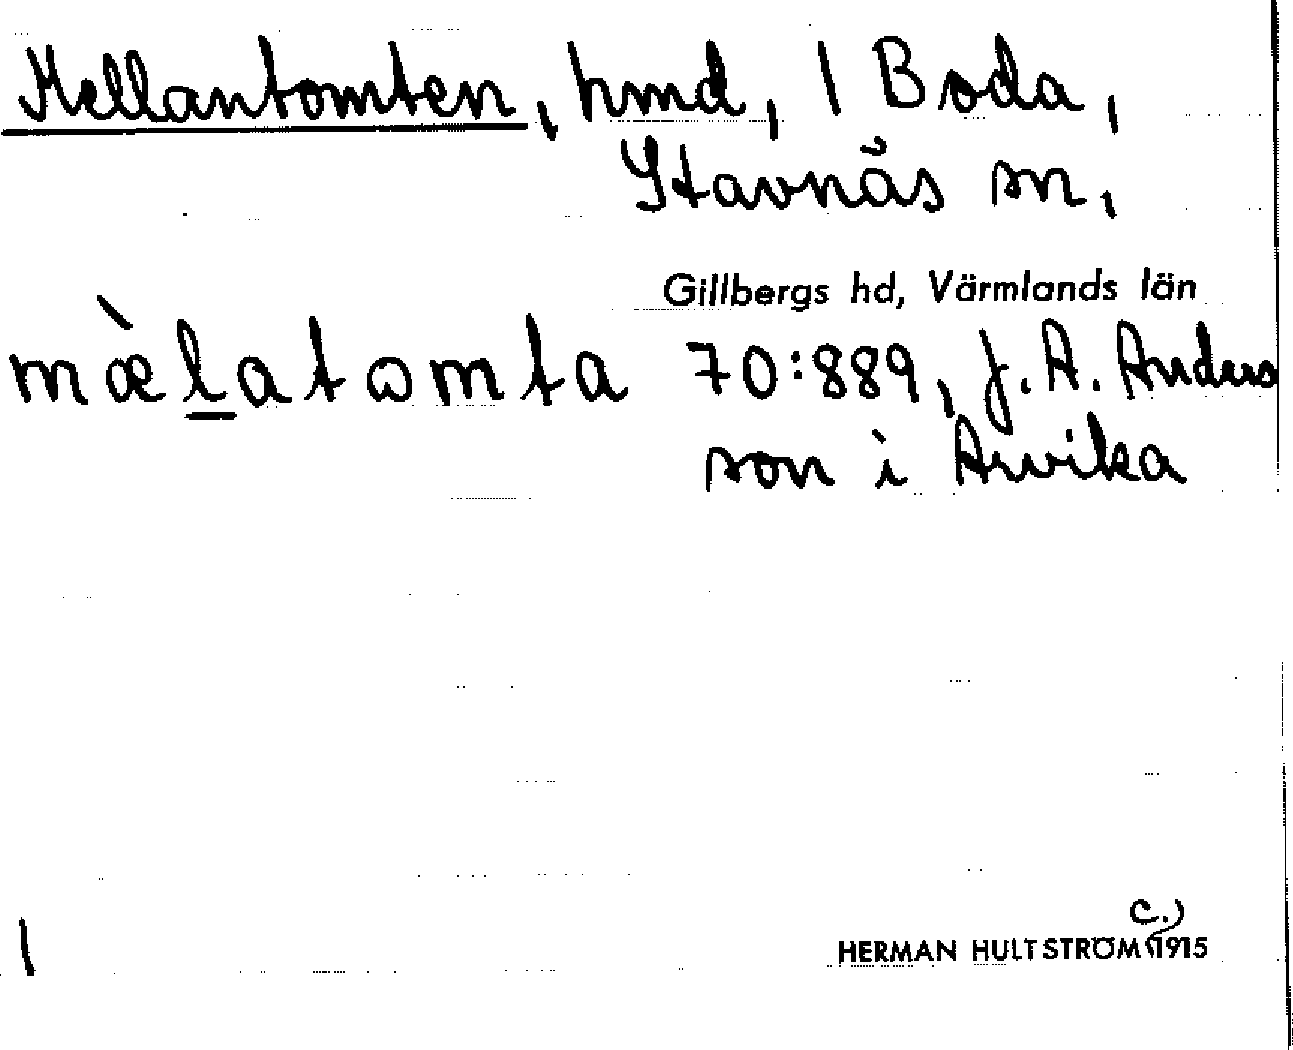 Mellantomten, hmd, 1 Boda,
Stavnäs sn,
Gillbergs hd, Värmlands län
mæ̀l̲atωmta 70:889, J. A. Anders
son i Arvika
c.)
HERMAN HULTSTRÖM 1915